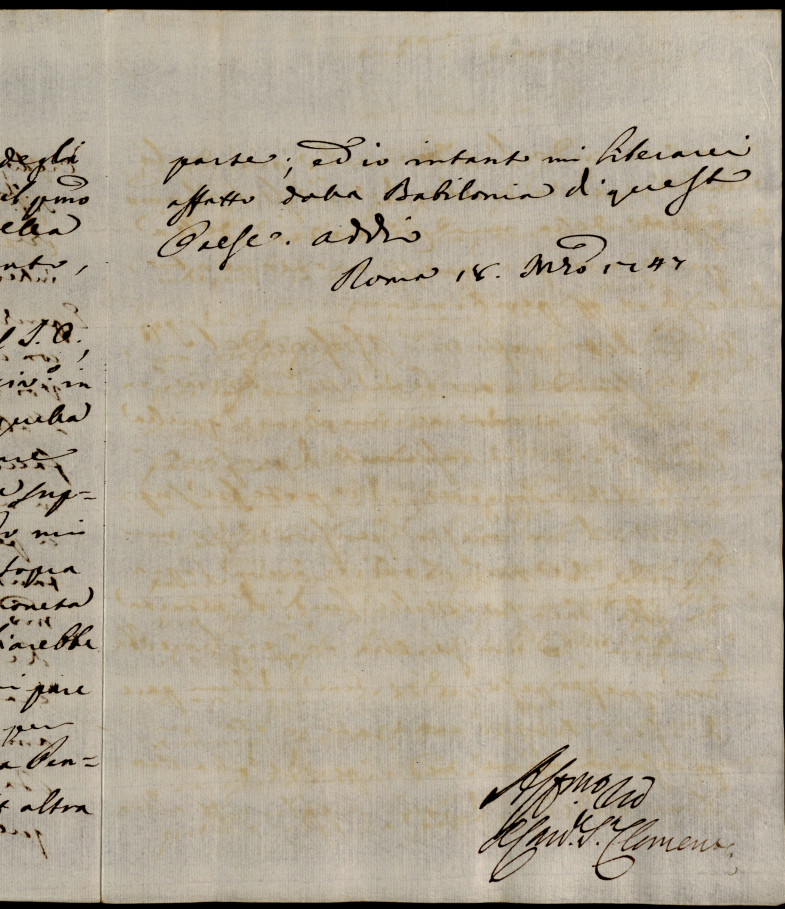 degli
il pmo
ella
S. O.
in
quella
sup=
mi
sopra
moneta
pare
per
a Pen=
altra
parte; ed io intanto mi libererei
affatto dalla Babilonia di questo
Paese. addio
Roma 18. Mzo 1747
Affmo Zio
Card. S. Clemente